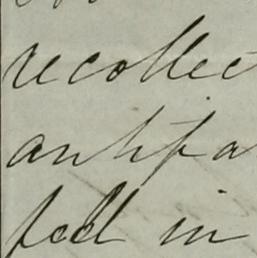 recollec
antipa
feel in